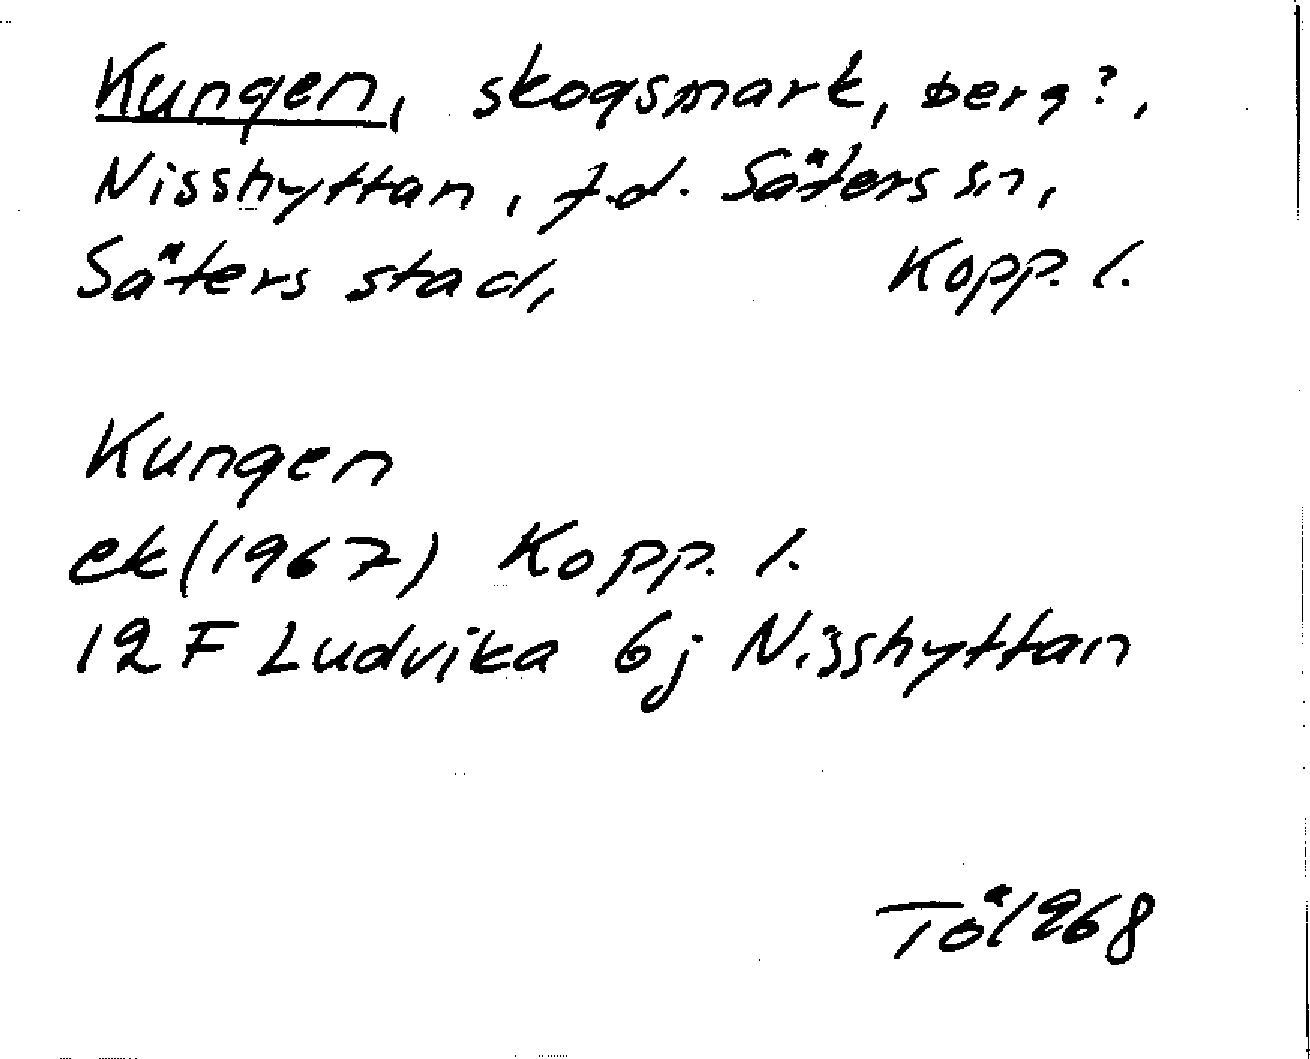 Kungen, skogsmark, berg?,
Nisshyttan, f.d. Säters sn,
Säters stad, Kopp. l.
Kungen
ek (1967) Kopp. l.
12 F Ludvika 6j Nisshyttan
Tö 1968